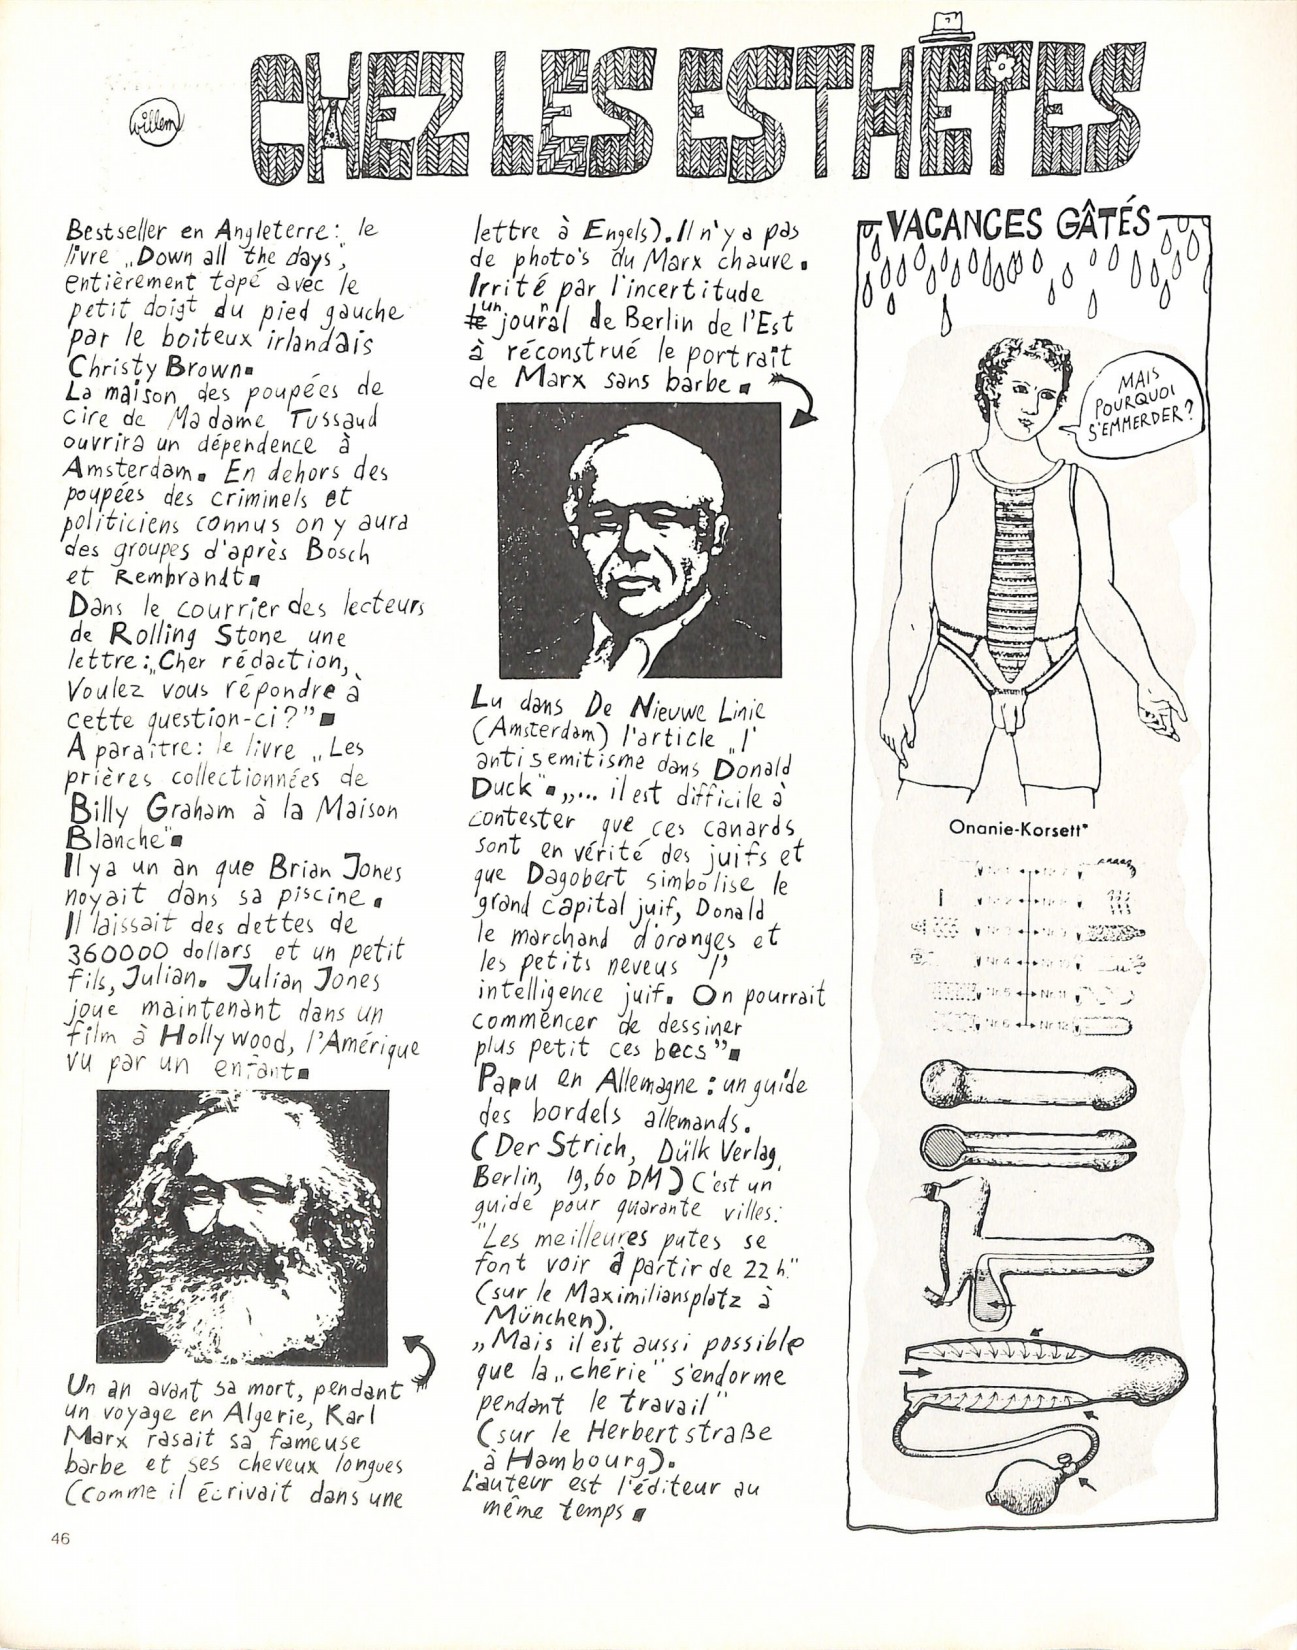 CHEZ LES ESTHÈTES
willem
Bestseller en Angleterre: le
livre „Down all the days",
entièrement tapé avec le
petit doigt du pied gauche
par le boiteux irlandais
Christy Brown.
La maison des poupées de
cire de Madame Tussaud
ouvrira un dépendence à
Amsterdam. En dehors des
poupées des criminels et
politiciens connus on y aura
des groupes d'après Bosch
et Rembrandt.
Dans le courrier des lecteurs
de Rolling Stone une
lettre: „Cher rédaction,
Voulez vous répondre à
cette question-ci?"
A paraître: le livre „Les
prières collectionnées de
Billy Graham à la Maison
Blanche"
Il ya un an que Brian Jones
noyait dans sa piscine.
Il laissait des dettes de
360000 dollars et un petit
fils, Julian. Julian Jones
joue maintenant dans un
film à Hollywood, l'Amérique
vu par un enfant.
Un an avant sa mort, pendant
un voyage en Algerie, Karl
Marx rasait sa fameuse
barbe et ses cheveux longues
(comme il écrivait dans une
46
lettre à Engels). Il n'y a pas
de photo's du Marx chauve.
Irrité par l'incertitude
un journal de Berlin de l'Est
à réconstrué le portrait
de Marx sans barbe.
Lu dans De Nieuwe Linie
(Amsterdam) l'article „l'
antisemitisme dans Donald
Duck". „... il est difficile à
contester que ces canards
sont en vérité des juifs et
que Dagobert simbolise le
grand capital juif, Donald
le marchand d'oranges et
les petits neveus l'
intelligence juif. On pourrait
commencer de dessiner
plus petit ces becs"
Paru en Allemagne: un guide
des bordels allemands.
(Der Strich, Dülk Verlag,
Berlin, 19,60 DM) C'est un
guide pour quarante villes:
"Les meilleures putes se
font voir à partir de 22 h."
(sur le Maximiliansplatz à
München).
„Mais il est aussi possible
que la „chérie" s'endorme
pendant le travail"
(sur le Herbertstraße
à Hambourg).
L'auteur est l'éditeur au
même temps
VACANCES GÂTÉS
MAIS
POURQUOI
S'EMMERDER?
Onanie-Korsett*